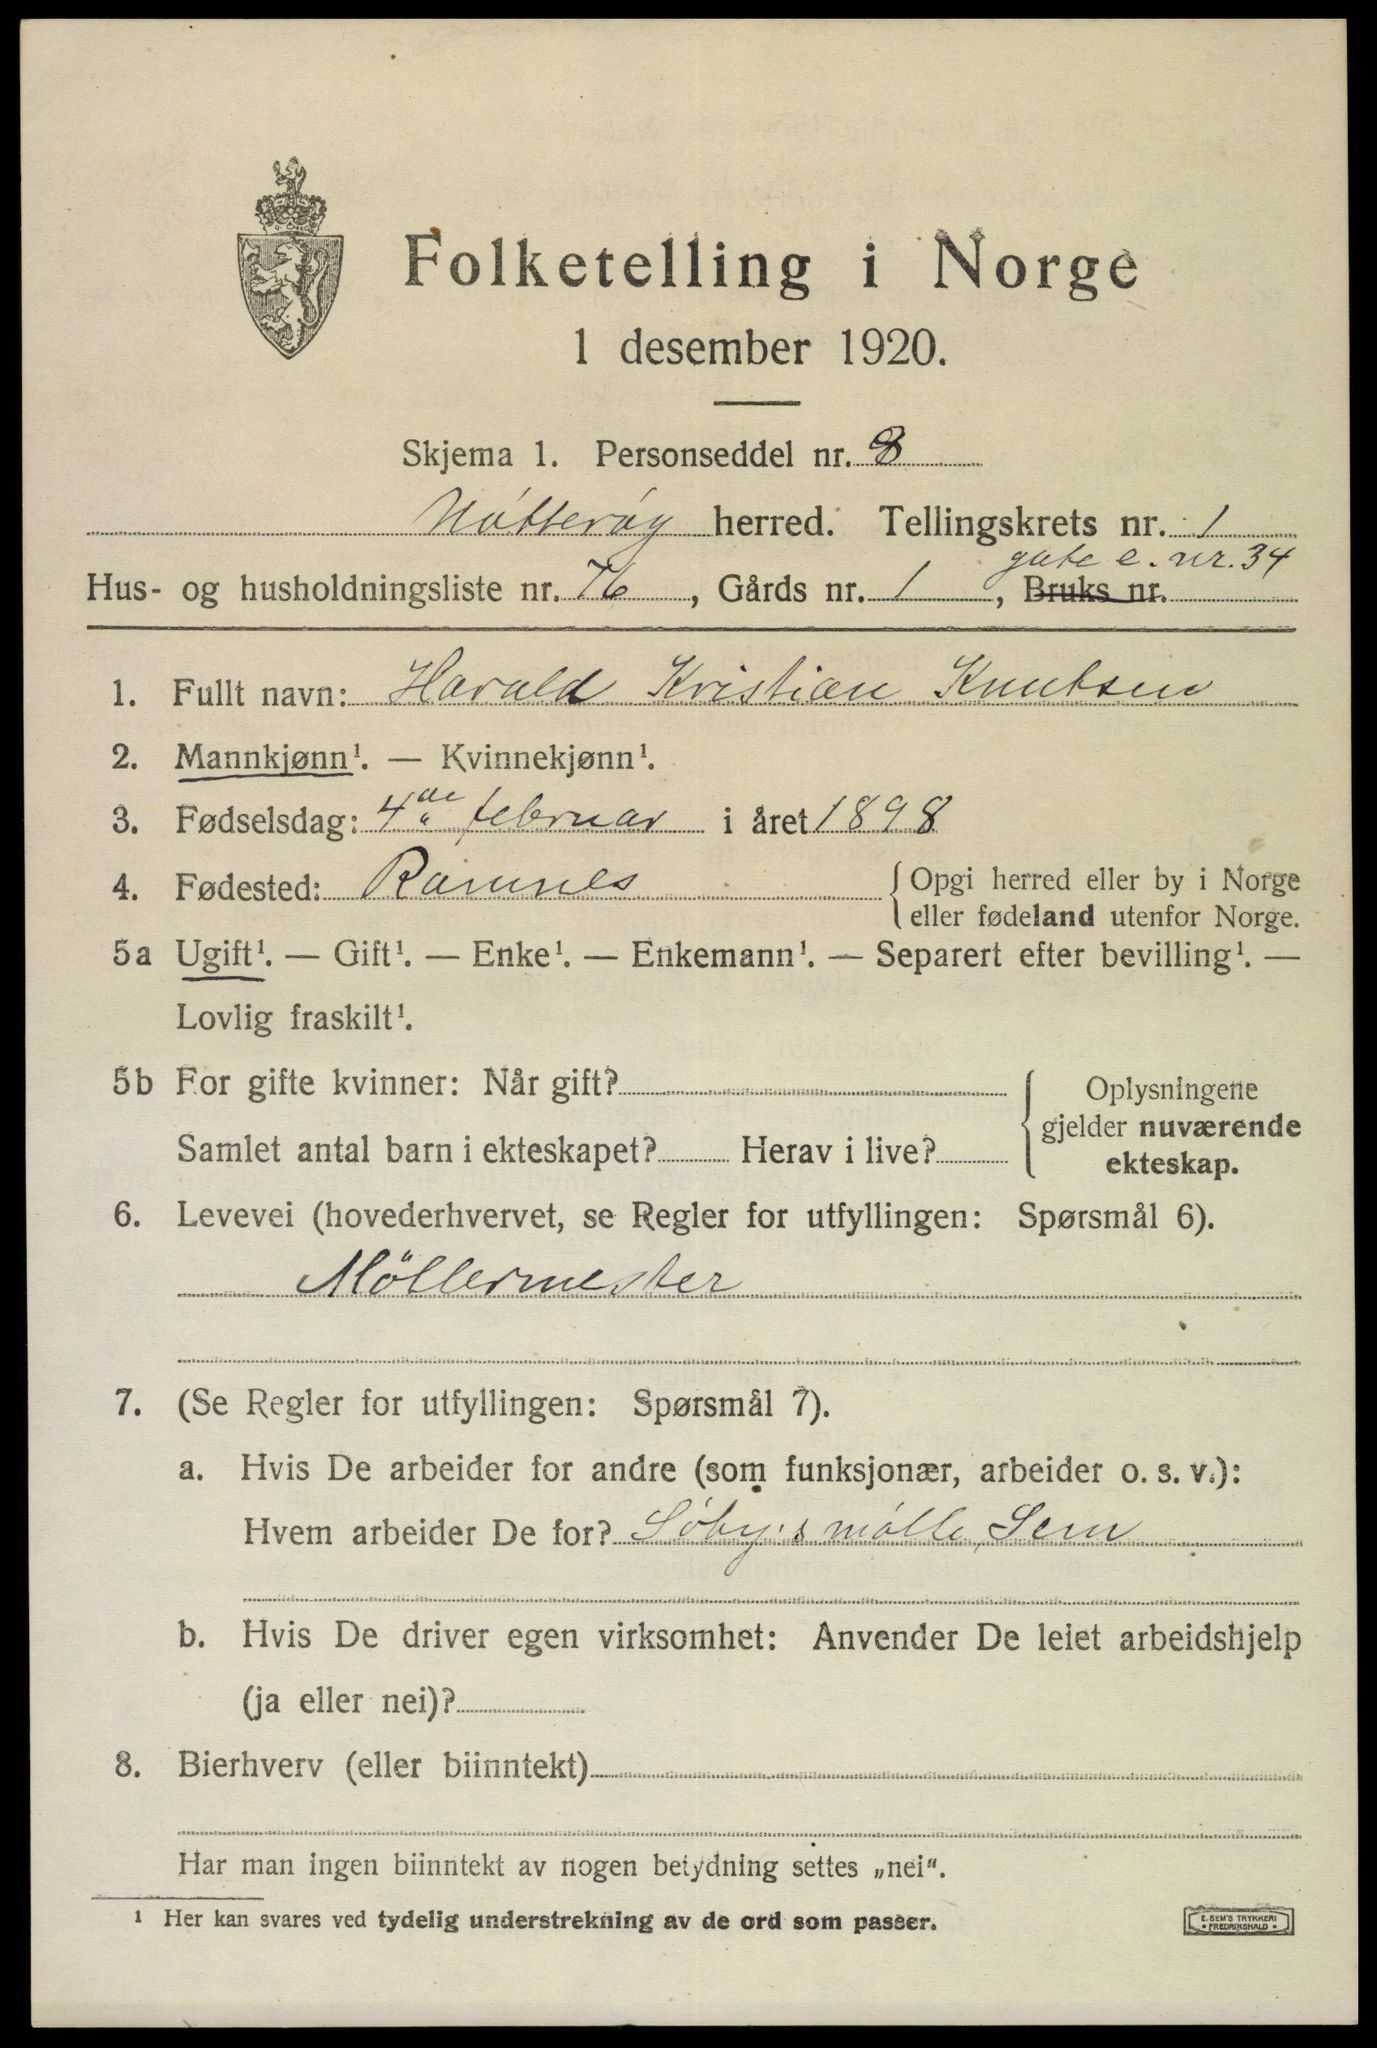 Folketelling i Norge
1 desember 1920.
Skjema 1. Personseddel nr. 8
Nötterøy herred. Tellingskrets nr. 1
gate e. nr. 34
Hus- og husholdningsliste nr. 76, Gårds nr. 1, Bruks nr.
1. Fullt navn: Harald Kristian Knutsen
2. Mannkjønn¹. — Kvinnekjønn¹.
3. Fødselsdag: 4de februar i året 1898
4. Fødested: Ramnes {Opgi herred eller by i Norge
eller fødeland utenfor Norge.
5a Ugift¹. — Gift¹. — Enke¹. — Enkemann¹. — Separert efter bevilling¹. —
Lovlig fraskilt¹.
5b For gifte kvinner: Når gift? {Oplysningene
gjelder nuværende
Samlet antal barn i ekteskapet? Herav i live? ekteskap.
6. Levevei (hovederhvervet, se Regler for utfyllingen: Spørsmål 6).
Möllermester
7. (Se Regler for utfyllingen: Spørsmål 7).
a. Hvis De arbeider for andre (som funksjonær, arbeider o. s. v.):
Hvem arbeider De for? Söby's mölle, Sem
b. Hvis De driver egen virksomhet: Anvender De leiet arbeidshjelp
(ja eller nei)?
8. Bierhverv (eller biinntekt)
Har man ingen biinntekt av nogen betydning settes „nei“.
¹ Her kan svares ved tydelig understrekning av de ord som passer.
E. SEM'S TRYKKERI
FREDRIKSHALD